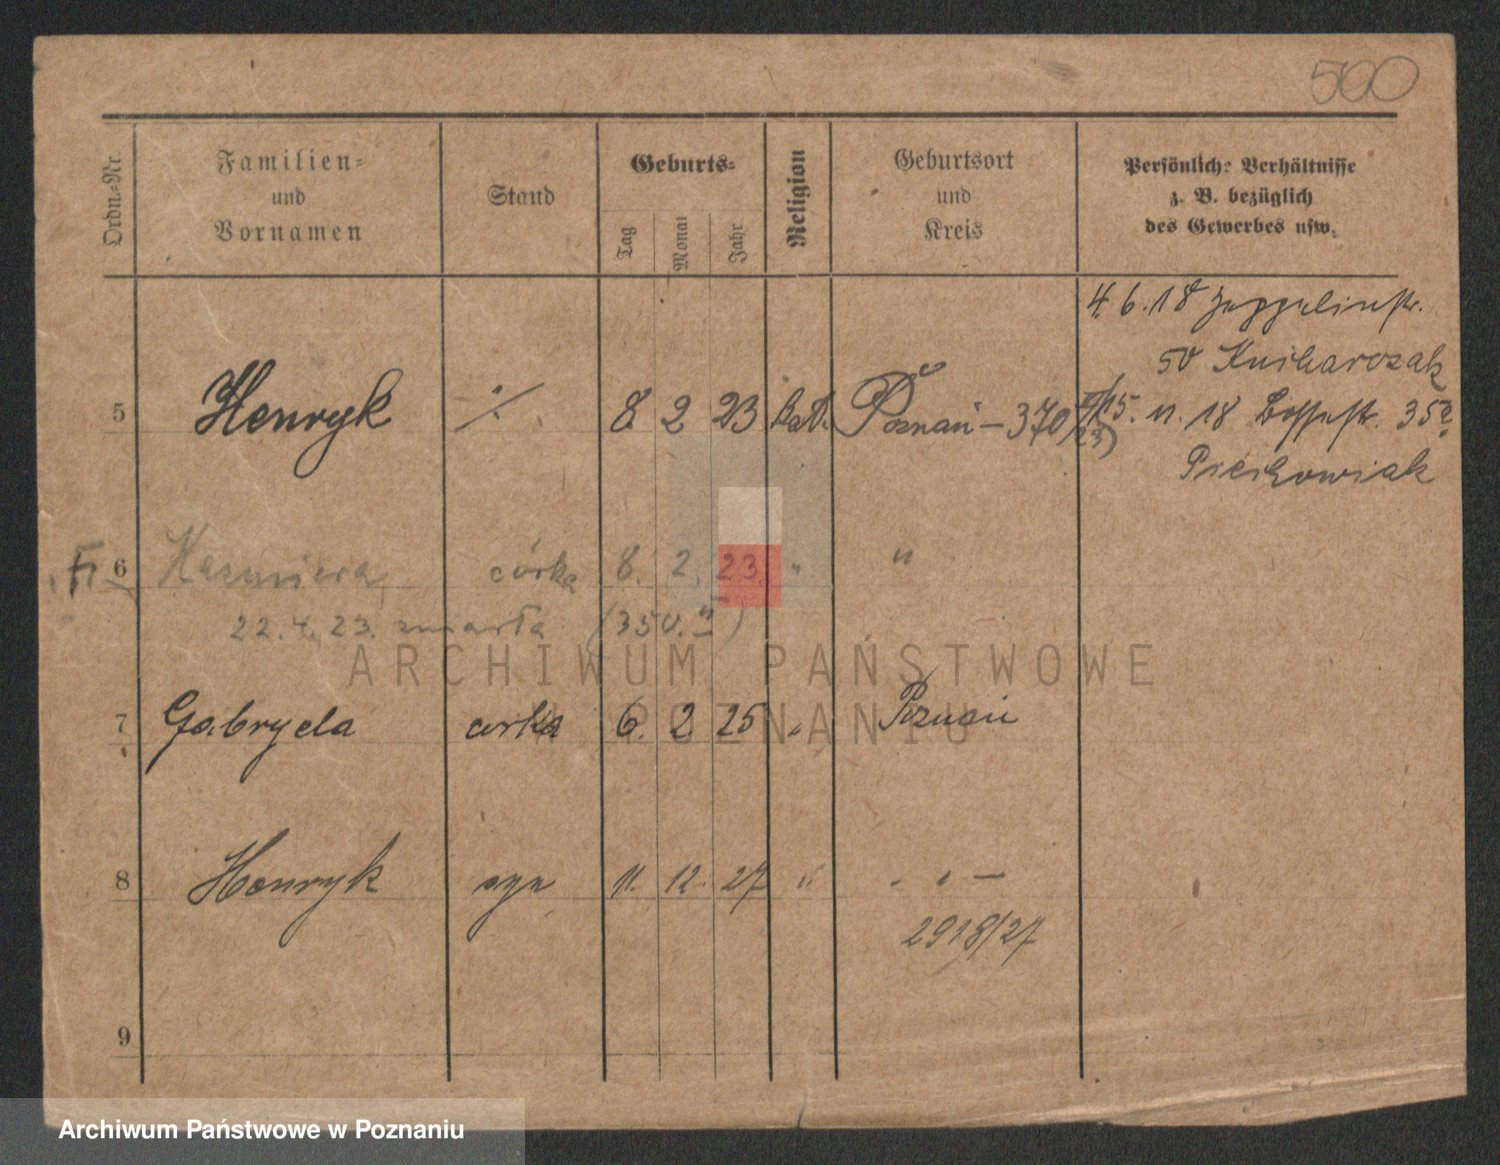 500
Ordn.=Nr.
Familien=
und
Vornamen
Stand
Geburts=
Tag
Monat
Jahr
Religion
Geburtsort
und
Kreis
Persönliche Verhältnisse
z. B. bezüglich
des Gewerbes usw.
4. 6. 18 Zeppelinstr.
50
5 Henryk ·/· 8. 2 23 kat. Poznań – 370
15. 11. 18 35
Piechowiak
6 Kazimiera córka 8. 2. 23. " "
22. 4. 23. zmarła (350.
ARCHIWUM PAŃSTWOWE
W POZNANIU
7 Gabryela corka 6. 2 25 " Poznań
8 Henryk syn 11. 12. 27 " " " –
2918/27
9
Archiwum Państwowe w Poznaniu